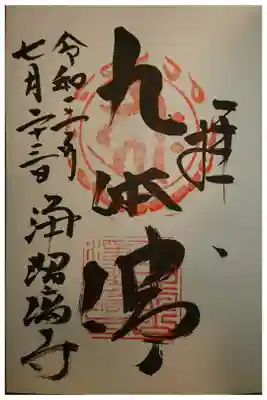 奉拝
九体佛
令和三年
七月二十三日
浄瑠璃寺